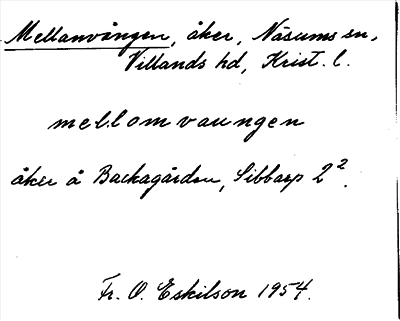 Mellanvången, åker, Näsums sn,
Villands hd, Krist. l.
mellom vaungen
åker å Backagården, Sibbarp 2².
Fr. O. Eskilson 1954.